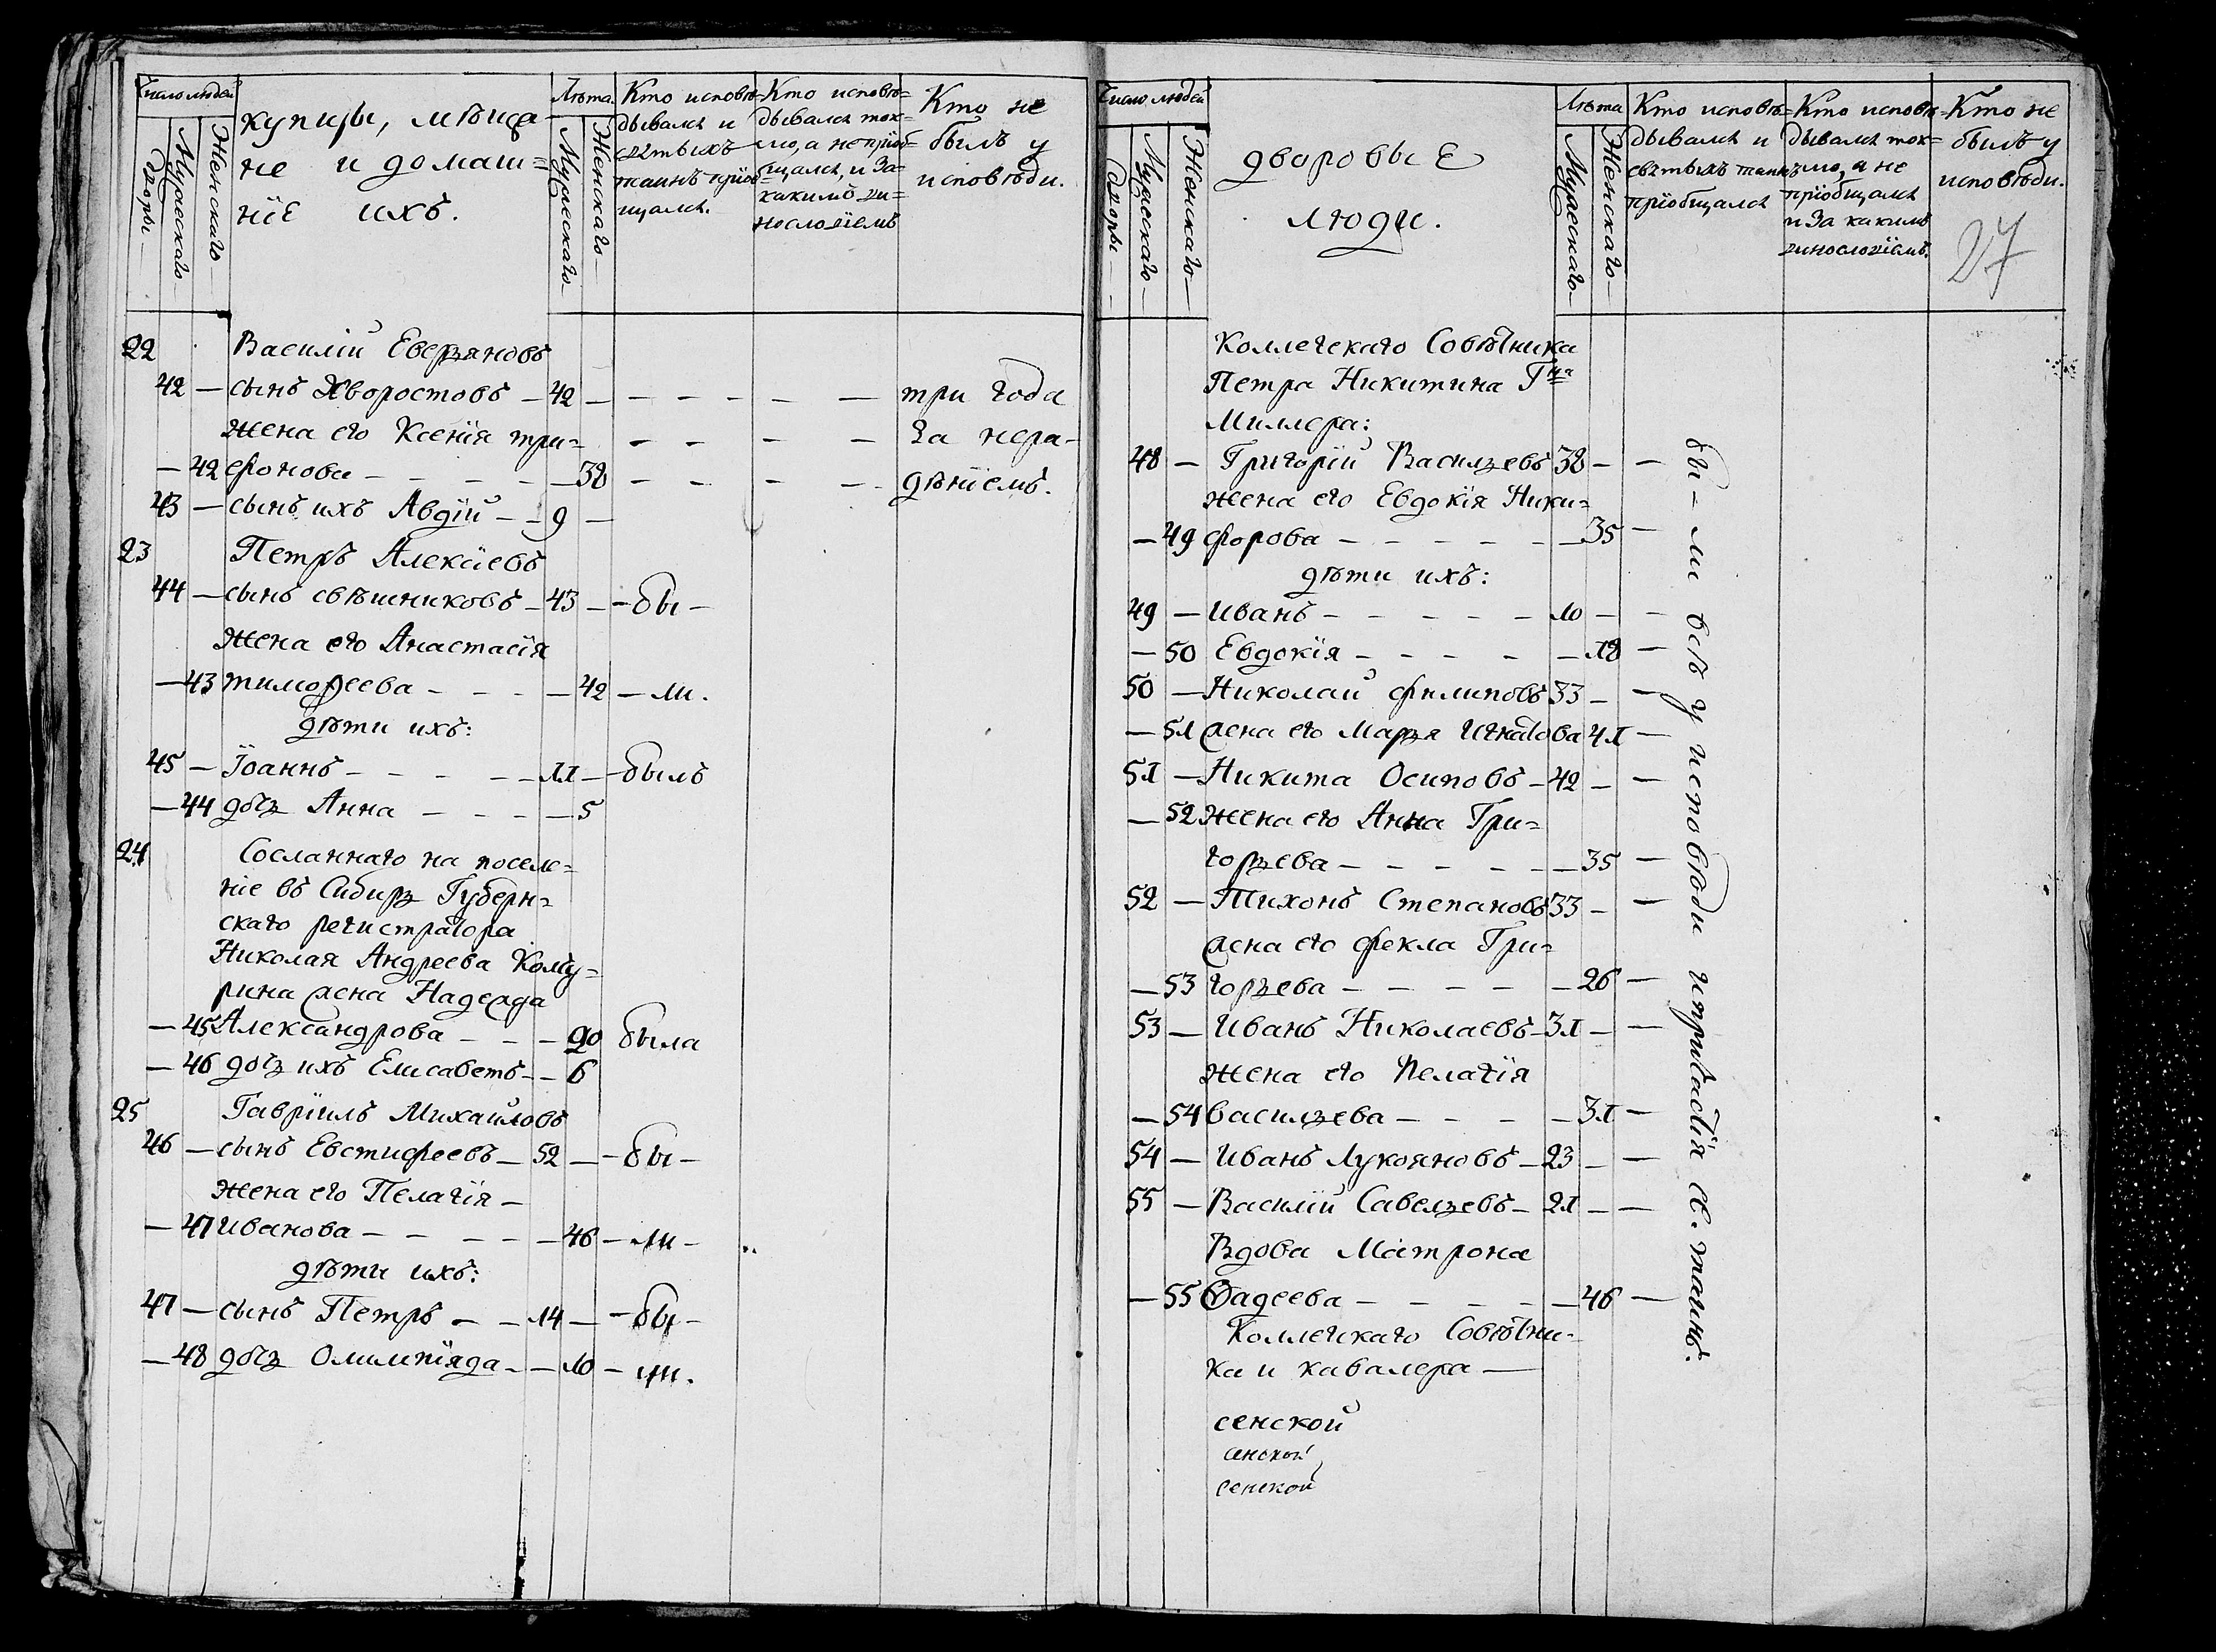 Число людей
дворы
Мужескаго
Женскаго
купцы, мѣща-
не и домаш=
нiе ихъ.
Лѣта
Мужескаго
Женскаго
Кто исповѣ=
дывался и
святыхъ
таинъ прiоб=
щался.
Кто исповѣ=
дывался ток=
мо, а не прiоб=
щался, и за
какимъ ви=
нословiемъ
Кто не
былъ у
исповѣди.
22 Василiй Еверьяновъ
42 — сынъ Хворостовъ — 42 — — — — — — три года
жена его Ксенiя три= — — — — за нера-
— 42 фонова — — — — 38 — — — — дѣнiемъ.
43 — сынъ ихъ Авдiй — — 9 —
23 Петръ Алексiевъ
44 — сынъ свѣшниковъ — 43 — — бы —
жена его Анастасiя
— 43 тимофеева — — — — 42 — ли.
дѣти ихъ:
45 — Iоаннъ — — — — — 11 — былъ
— 44 дочь Анна — — — — 5
24 Сосланнаго на поселе=
нiе въ Сибирь Губерн=
скаго регистратора
Николая Андреева Кому=
рина жена Надежда
— 45 Александрова — — — 90 была
— 46 дочь ихъ Елисаветъ — — 6
25 Гаврiилъ Михайловъ
46 — сынъ Евстифеевъ — 52 — — бы —
жена его Пелагiя —
— 47 Иванова — — — — — 46 — ли —
дѣти ихъ:
47 — сынъ Петръ — — 14 — — бы —
— 48 дочь Олимпiяда — — 10 — ли.
Число людей
дворы
Мужескаго
Женскаго
дворовые
люди.
Лѣта
Мужескаго
Женскаго
Кто исповѣ=
дывался и
святыхъ таинъ
прiобщался
Кто исповѣ=
дывался ток=
мо, а не
прiобщался
и за какимъ
винословiемъ.
Кто не
былъ у
исповѣди.
27
Коллежскаго Совѣтника
Петра Никитина Гна
Миллера:
48 — Григорiй Васильевъ 38 — —
жена его Евдокiя Ники=
— 49 форова — — — — — — 35 —
дѣти ихъ:
49 — Иванъ — — — — — 10 — —
— 50 Евдокiя — — — — — 18 —
50 — Николай филиповъ 33 — —
— 51 жена его Марья Игнатова 41 —
51 — Никита Осиповъ — 42 — —
— 52 жена его Анна Гри=
горьева — — — — — — 35 —
52 — Тихонъ Степановъ 33 — —
жена его фекла Гри=
— 53 горьева — — — — — 26 —
53 — Иванъ Николаевъ — 31 — —
жена его Пелагiя
— 54 васильева — — — — 31 —
54 — Иванъ Лукояновъ — 23 — —
55 — Василiй Савельевъ — 21 — —
Вдова Матрона
— 55 Фадеева — — — — — 46 —
Коллежскаго Совѣтни-
ка и кавалера —
сенской
сенской
сенской
бы — ли всѣ у исповѣди и причастiя св. таинъ.